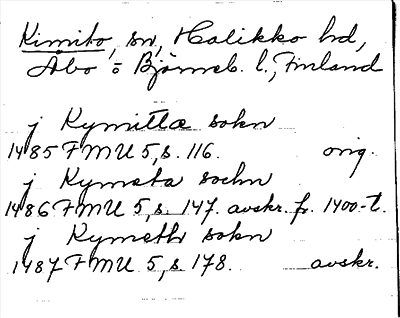 Kimito, sn, Halikko hd,
Åbo o Björneb. l., Finland
j Kymitta sokn
1485 FMU 5, s. 116. orig.
j Kymeta sochn
1486 FMU 5, s. 147. avskr. fr. 1400-t.
j Kymeth sokn
1487 FMU 5, s 178. avskr.